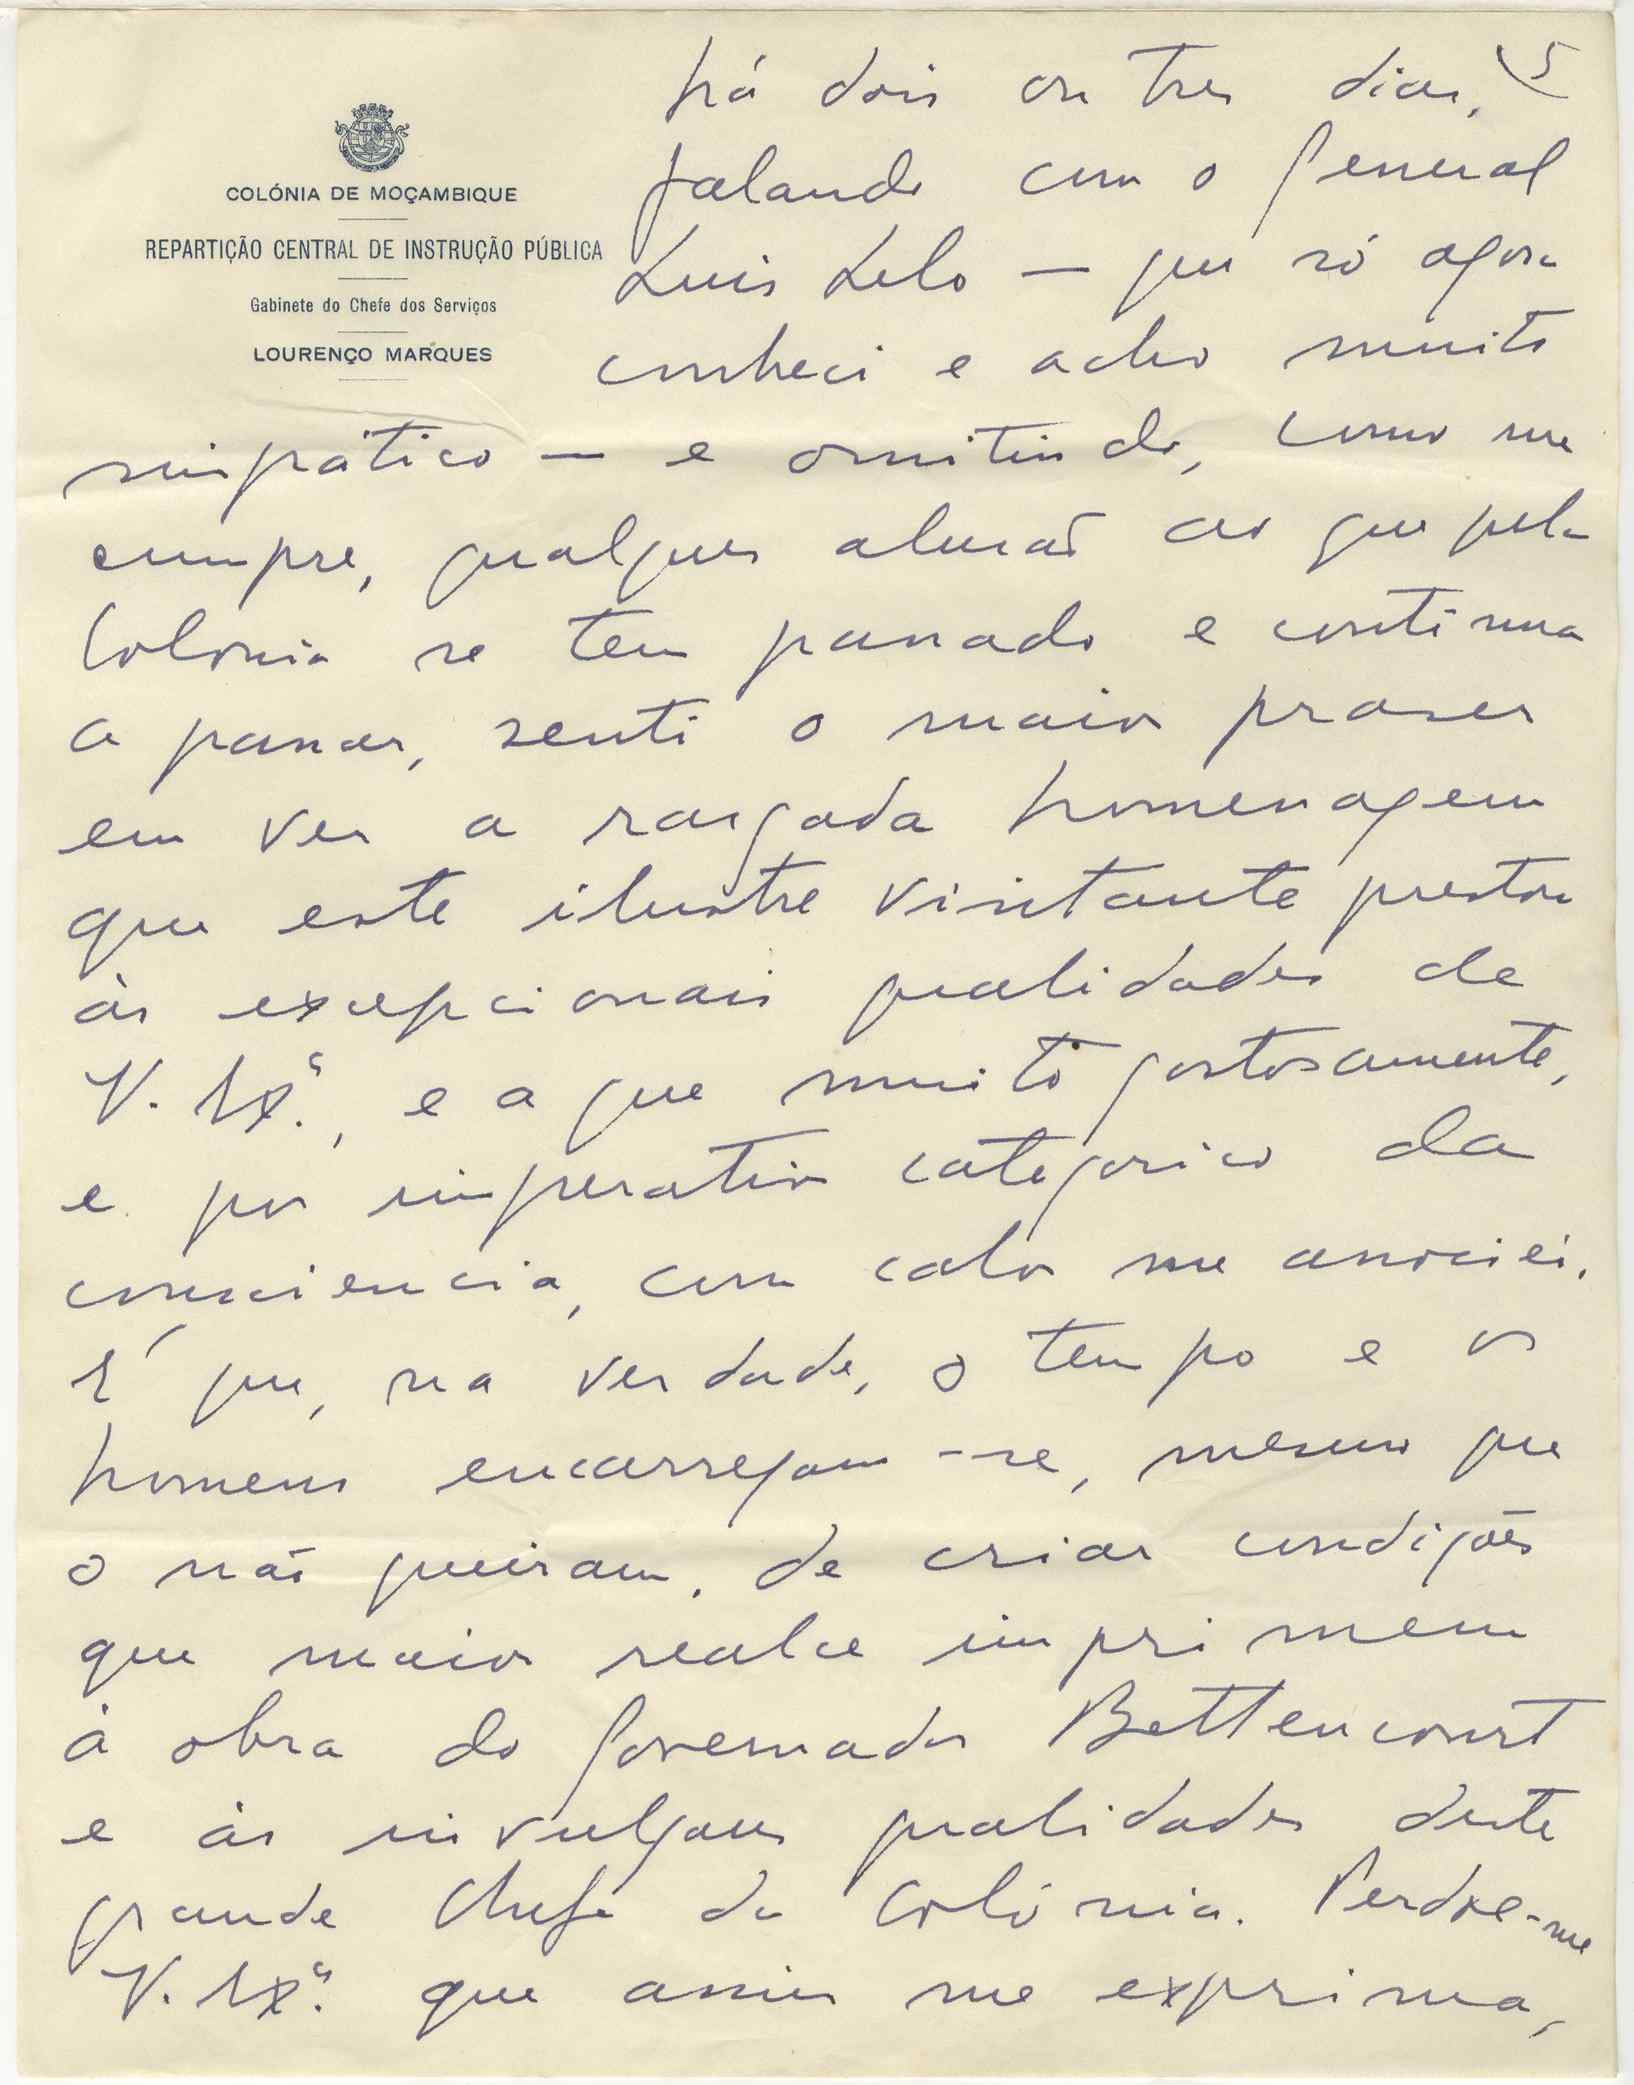 5
COLÓNIA DE MOÇAMBIQUE
REPARTIÇÃO CENTRAL DE INSTRUÇÃO PÚBLICA
Gabinete do Chefe dos Serviços
LOURENÇO MARQUES
há dois ou tres dias,
falando com o General
Luis Lelo — que só agora
conheci e acho muito
simpático — e omitindo, como me
cumpre, qualquer alusão ao que pela
Colonia se tem passado e continua
a passar, senti o maior praser
em ver a rasgada homenagem
que este ilustre visitante prestou
às excepcionais qualidades de
V. Exª., e a que muito gostosamente,
e por imperativo categorico da
consciencia, com calor me associei.
É que, na verdade, o tempo e os
homens encarregam-se, mesmo que
o não queiram, de criar condições
que maior realce imprimem
à obra do Governador Bettencourt
e às invulgares qualidades deste
grande Chefe da Colónia. Perdoe-me
V. Exª. que assim me exprima,